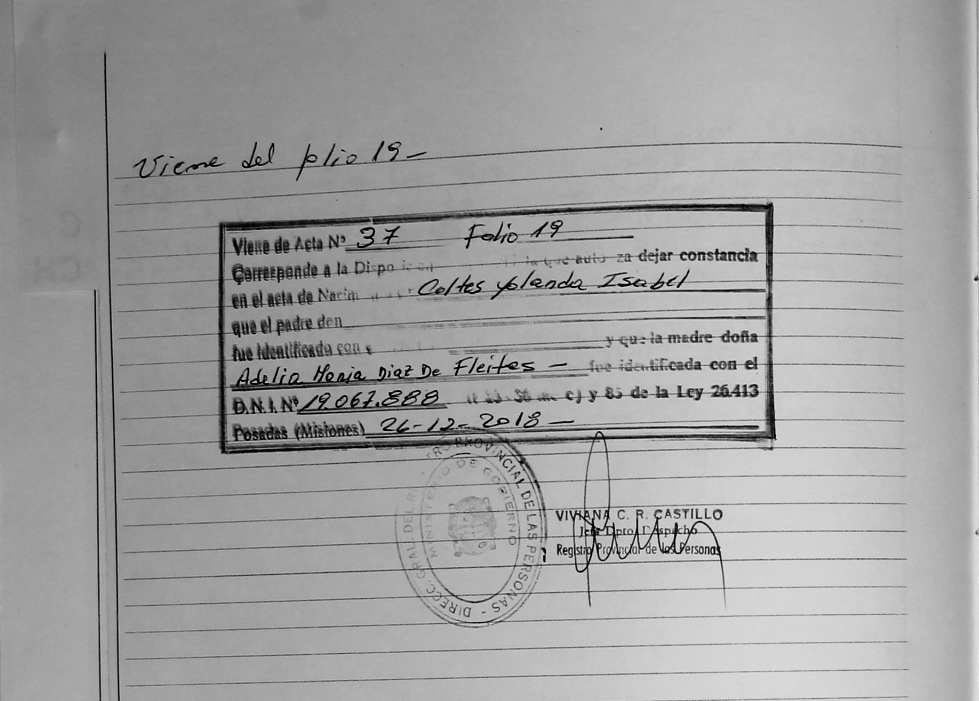 Viene del folio 19-
Viene de Acta Nº 37 Folio 19
Corresponde a la Dispo que auto za dejar constancia
en el acta de Nacim Celtes Yolanda Isabel
que el padre don
fue identificado con y que la madre doña
Adelia Maria Diaz De Fleitas - fue identificada con el
D.N.I. Nº 19.067.888 c) y 85 de la Ley 26.413
Posadas (Misiones) 26-12-2018-
DIRECC. GRAL. DEL PROVINCIAL DE LAS PERSONAS -
MINISTERIO DE GOBIERNO
VIVIANA C. R. CASTILLO
Jefa Dpto. Despacho
Registro Provincial de las Personas